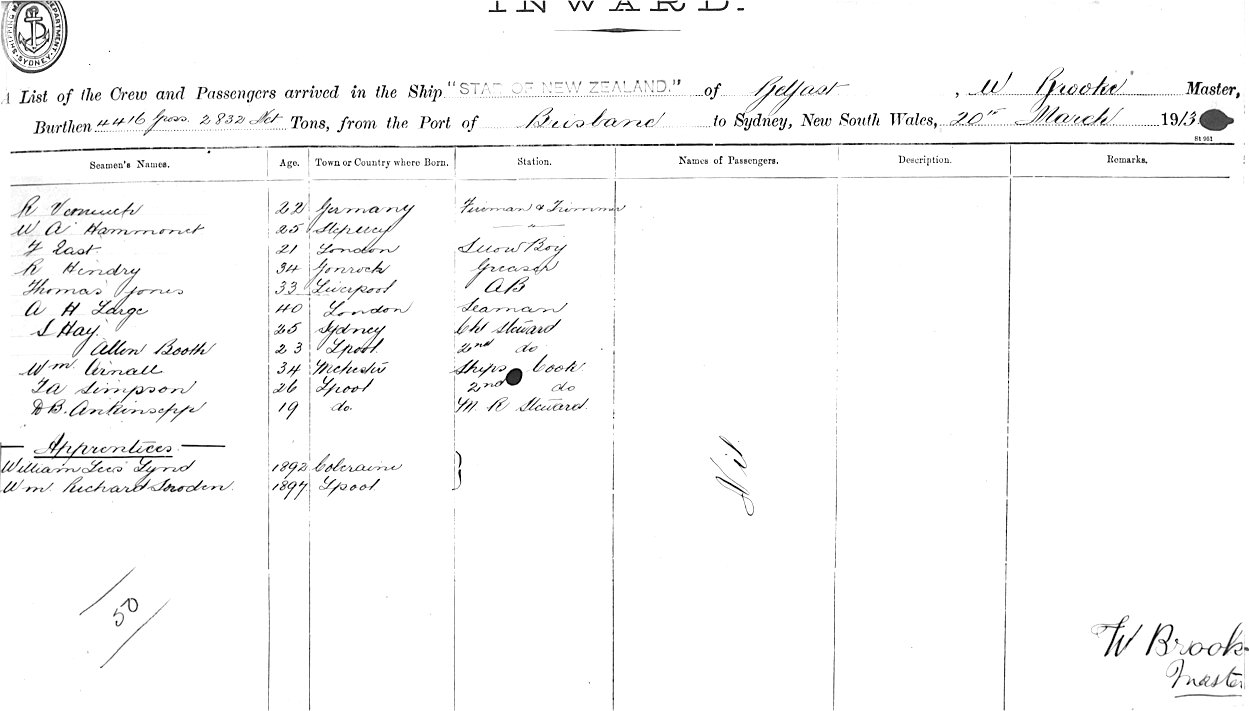 INWARD.
SYDNEY
A List of the Crew and Passengers arrived in the Ship "STAR OF NEW ZEALAND." of Belfast, W Brooke Master,
Burthen 4416 Gross 2832 Net Tons, from the Port of Brisbane to Sydney, New South Wales, 20th March 1913
Seamen's Names. Age. Town or Country where Born. Station. Names of Passengers. Description. Remarks.
R 22 Germany Fireman & Trimmer
W A Hammonet 25 Stepney "
F East 21 London Boy
R Hendry 34 Gonrock Greaser
Thomas Jones 33 Liverpool AB
A H Large 40 London Seaman
S Hay 25 Sydney Ch Steward
Allen Booth 23 Lpool 2nd do
Wm Arnall 34 Mchester Ships Cook
Simpson 26 Lpool 2nd do
D B. 19 do. M. R Steward.
Apprentices
William Lees Lynd 1892 Coleraine
Wm. Richard Snoden. 1897 Lpool
Nil
50
W Brook
Master